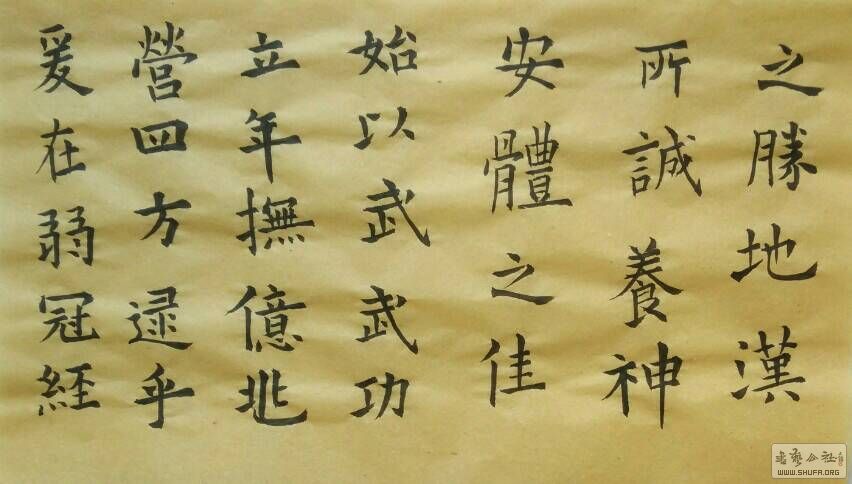 之勝地漢
所誠養神
安體之佳
始以武武功
立年撫億兆
營四方逮乎
爰在弱冠経
书艺公社
WWW.SHUFA.ORG